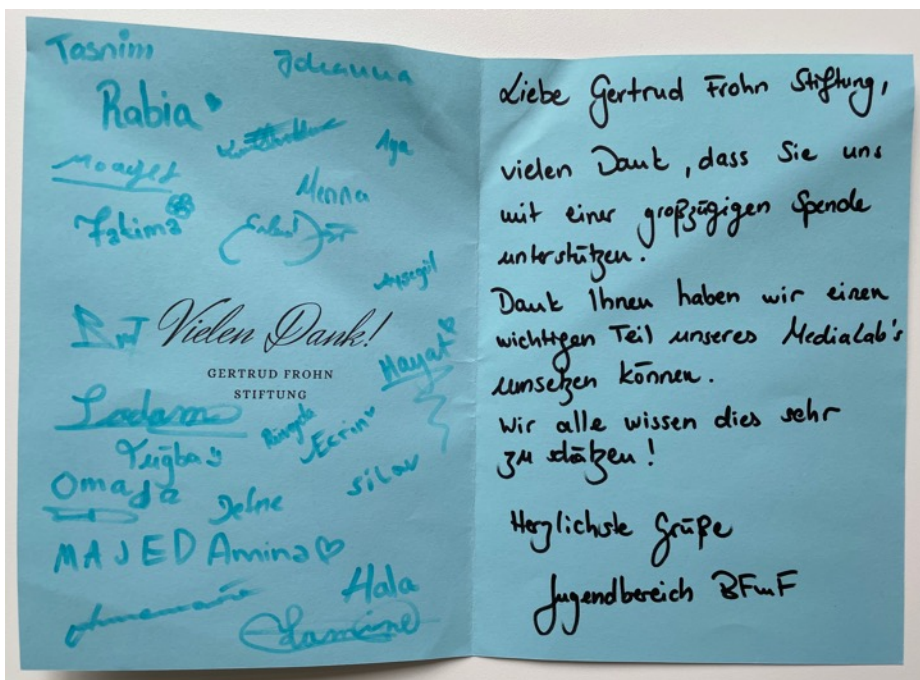 Tasnim
Johanna
Rabia
Aya
Menna
Fatima
Aysegül
Vielen Dank!
GERTRUD FROHN
STIFTUNG
Hayat
Ecrin
Tuğba
silav
Defne
MAJED Amina
Hala
Liebe Gertrud Frohn Stiftung,
vielen Dank, dass Sie uns
mit einer großzügigen Spende
unterstützen.
Dank Ihnen haben wir einen
wichtigen Teil unseres MediaLab's
umsetzen können.
Wir alle wissen dies sehr
zu schätzen!
Herzlichste Grüße
Jugendbereich BFmF